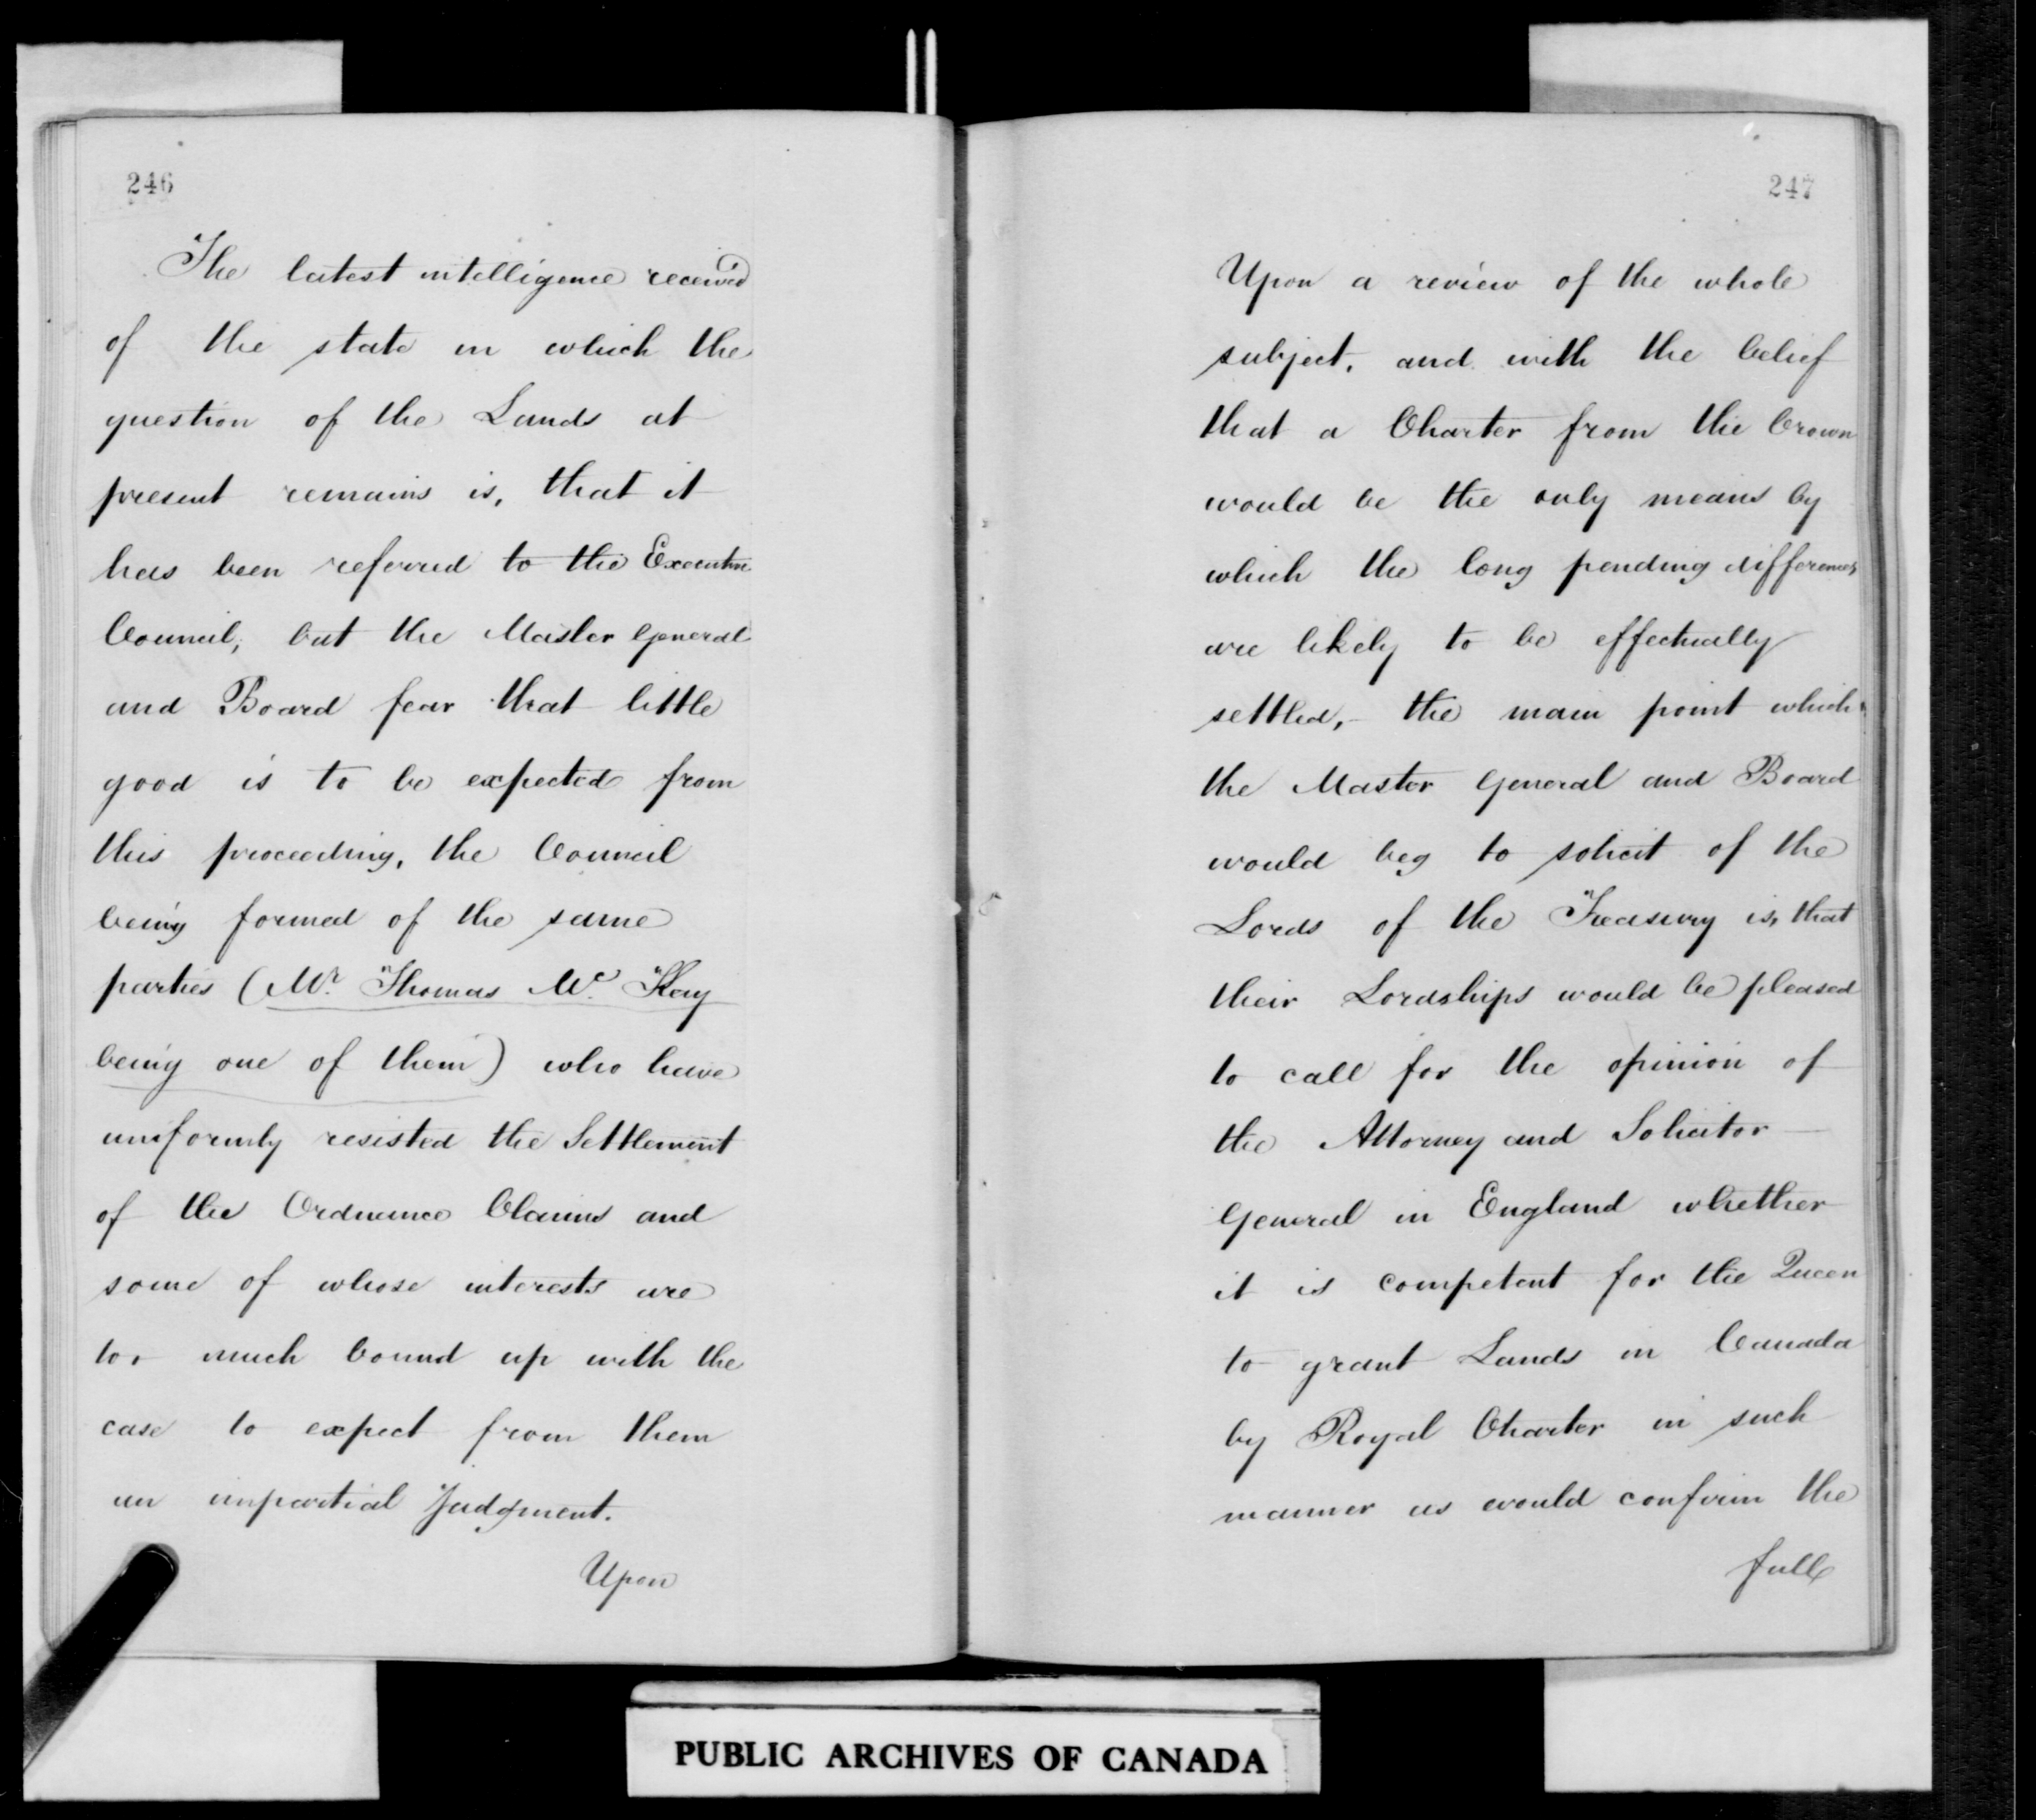 246
The latest intelligence received
of the state in which the
question of the Lands at
present remains is, that it
has been referred to the Executive
Council, but the Master General
and Board fear that little
good is to be expected from
this proceeding, the Council
being formed of the same
parties (Mr. Thomas Mc. Kay
being one of them) who have
uniformly resisted the Settlement
of the Ordnance Claims and
some of whose interests are
too much bound up with the
case to expect from them
an impartial Judgment.
Upon
247
Upon a review of the whole
subject, and with the belief
that a Charter from the Crown
would be the only means by
which the long pending differences
are likely to be effectually
settled, - the main point which
the Master General and Board
would beg to solicit of the
Lords of the Treasury is, that
their Lordships would be pleased
to call for the opinion of
the Attorney and Solicitor -
General in England whether
it is competent for the Queen
to grant Lands in Canada
by Royal Charter in such
manner as would confirm the
full
PUBLIC ARCHIVES OF CANADA